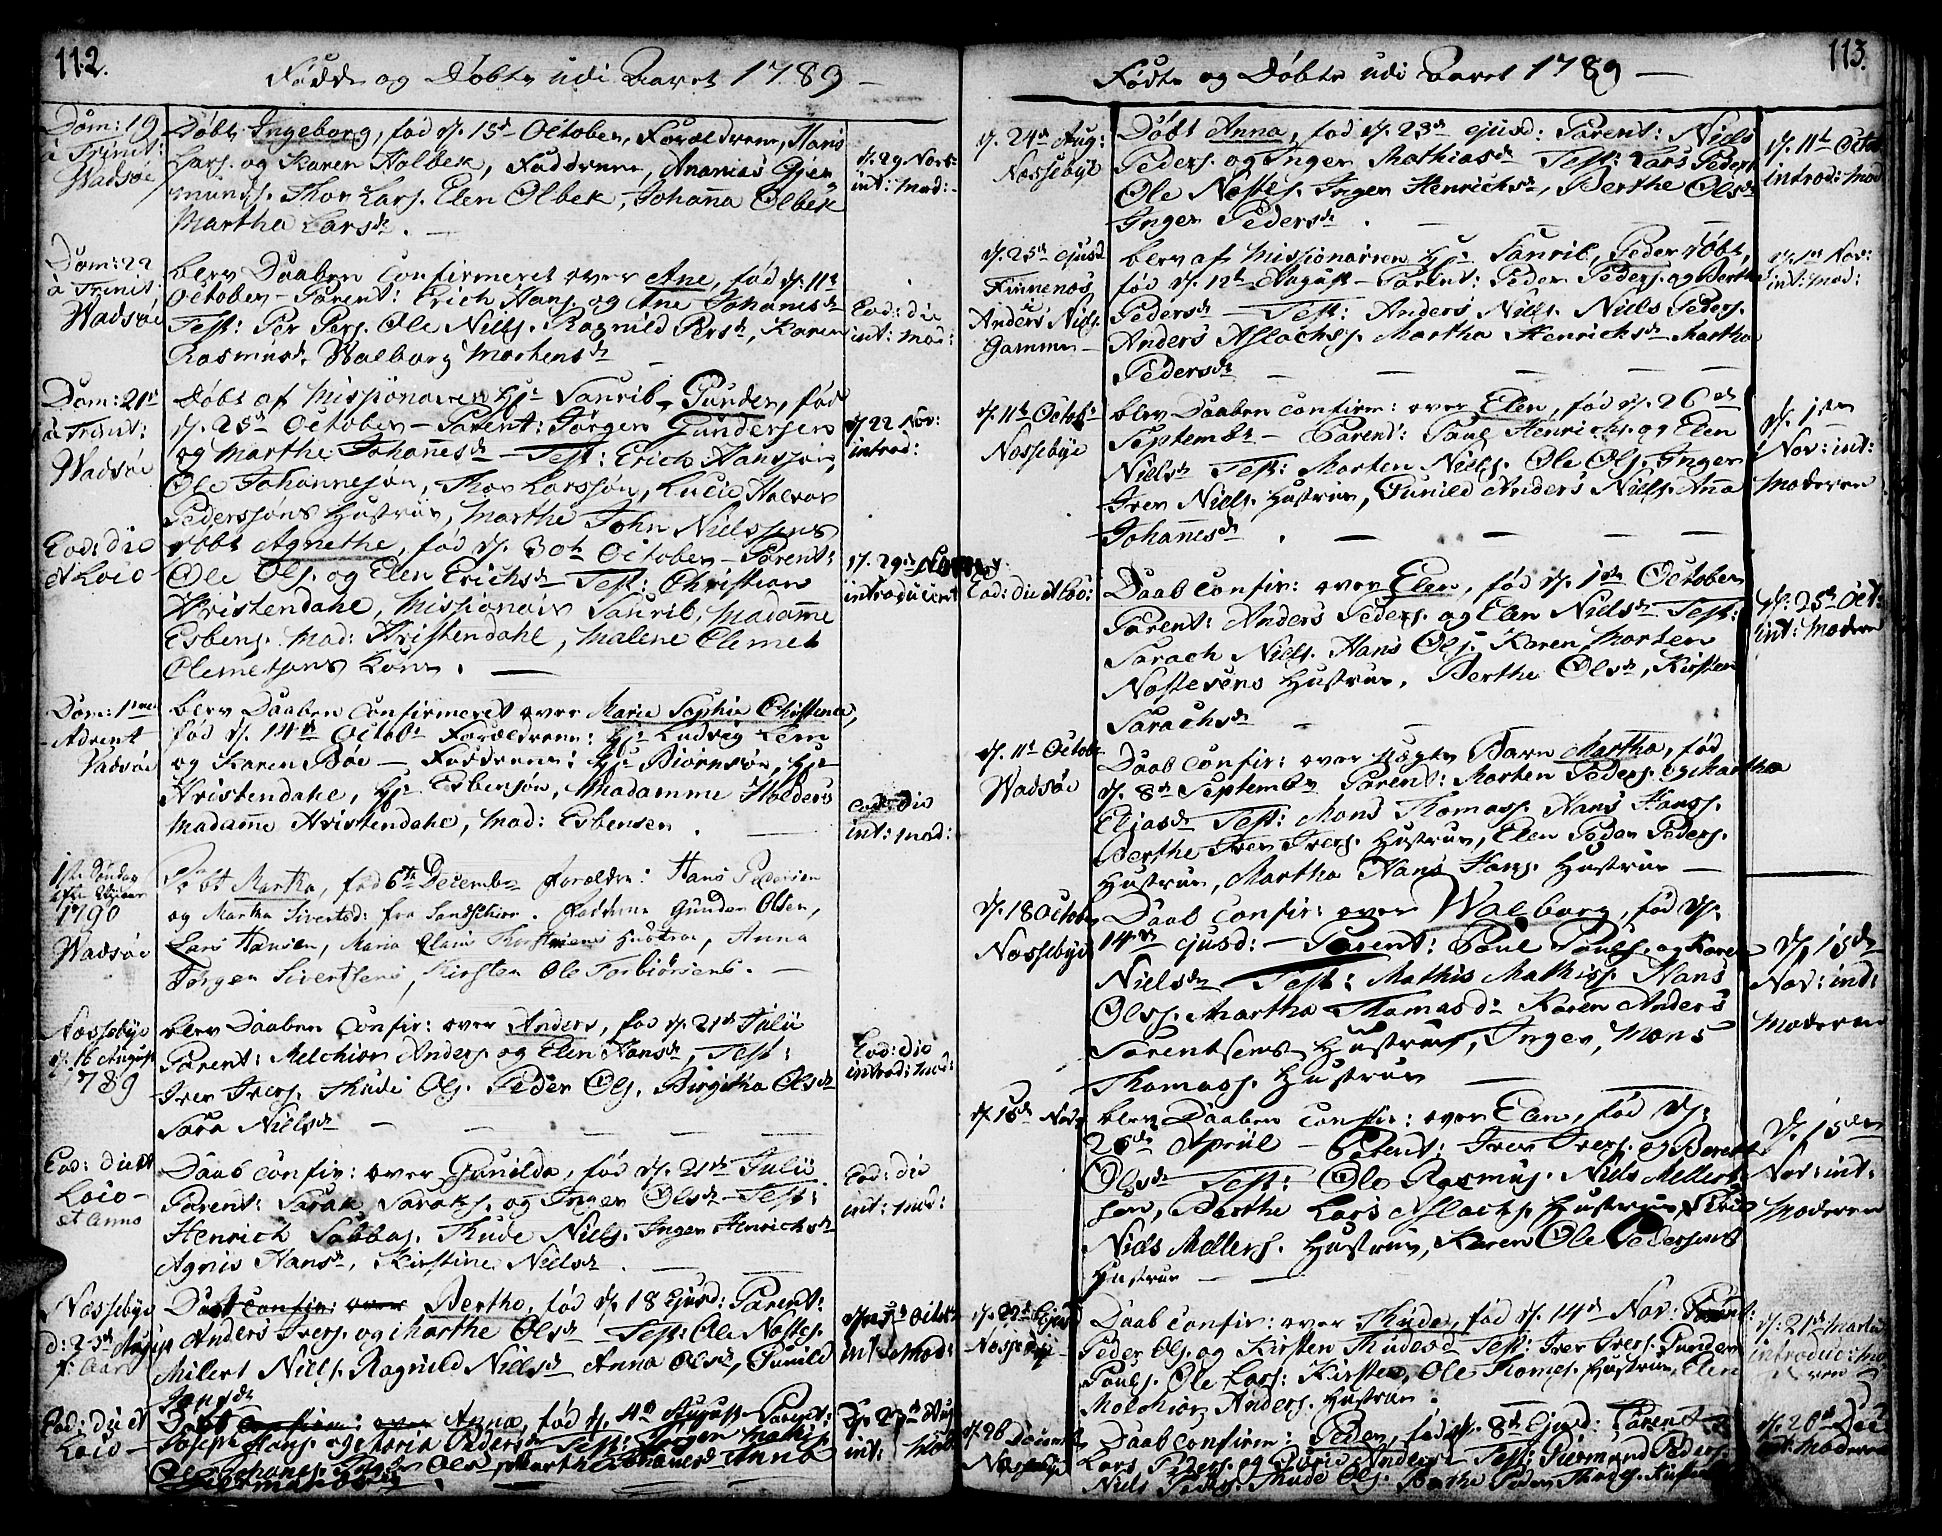 112.
Fødde og Døbte udi Aaret 1789 —
Dom: 19
à Trinit:
Wadsöe
Döbt Ingeborg, fød d. 15de October, Forældrene, Hans
Lars. og Karen Holbek, Faddrene, Ananias Gier
munds. Thor Lars. Elen Olbek, Johanna Olbek
Martha Larsdr. —
d. 29 Novr:
int: Mod:
Dom: 22
à Trinit:
Wadsöe
blev Daaben Confirmeret over Ane, fød d. 11te
October — Parent: Erich Hans. og Ane Johanisdr
Test: Per Pers. Ole Niels. Ragnild Persdr, Karen
Rasmusdr. Walborg Mortensdr —
Eod: die
int: Mod:
Dom: 21de
à Trinit:
Wadsöe
Döbt af Missionairen Hr: Saurib, Gunder, fød
d. 25de October — Parent: Jörgen Gundersen
og Marthe Johannesdr — Test: Erich Hanssøn,
Ole Johannesøn, Thor Larssøn, Lucie Halvor
Pederssøns Hustrue, Marthe John Nielssøns
d. 22 Nov:
introd:
Eod: die
et Loco
döbt Agnethe, fød d. 30te October — Parent:
Ole Ols. og Elen Erichsdr — Test: Christian
Kristendahl, Missionair Saurib, Madamme
Esbens. Mad: Kristendahl, Malene Clemet
Clemetsøns Kone. —
d. 29de Novbr
introduceret
Dom: 1me
Advent
Vadsöe
blev Daaben Confirmeret over Marie Sophie Christence,
fød d. 14de Octobr Forældrene: Hr: Ludvig Lem
og Karen Böe — Faddrene: Hr: Biörnsøn, Hr:
Kristendahl, Hr: Esbensøn, Madamme Holders
Madamme Kristendahl, Mad: Esbensen. —
Eod: die
int: Mod:
1ste Söndag
1790
Wadsöe
Döbt Martha, fød 6te December forældre: Hans Pedersen
og Martha Sivertsd: fra Sandschier. Faddrene Gunder Olsen,
Lars Hansen, Maria Hustroe, Anna
Jörgen Sivertsens, Kirsten Ole Torbiörsens. —
Næsseby
d. 16 August
1789
blev Daaben Confir: over Anders, fød d. 21de Julii
Parent: Melchior Anders. og Elen Hansdr, Test:
Iver Ivers. Thude Ols. Peder Ols. Birgitha Olsdr
Sara Nielsdr —
Eod: die
introd: Mod:
Eod: die et
Loco —
et anno
Daab Confir: over Gunilda, fød d. 21de Julii
Parent: Sarak Saraks. og Inger Olsdr — Test:
Henrich Sabbas. Thude Niels. Inger Henrichsdr
Agnis Hansdr, Kirstine Nielsdr. —
Eod: die
int: Mod:
Næssebye
d: 23de August
Daab Confir: over Berthe, fød d. 18 Ejusd: Parent:
Anders Ivers. og Marthe Olsdr — Test: Ole Nostes.
Milert Niels. Ragnild Nielsdr Anna Olsdr, Gunild
Jensdr
Eod: die et
Loco —
Daab Confirm: over Anna, fød d. 4de August Parent:
Joseph Hans. og Maria Pedersdr — Test:
113.
Fødte og Døbte udi Aaret 1789 —
d. 24de Aug:
Næssebye
Döbt Anna, fød d. 23de ejusd: Parent: Niels
Peders. og Inger Mathiasdr Test: Lars Peders.
Ole Nostes. Inger Henrichsdr, Berthe Olsdr
Inger Pedersdr. —
d. 11te Octob:
introd: Mod
d. 25de ejusd
Finnenæs
i
Anders Niels.
Gamme —
blev af Missionairen Hr: Saurib, Peder döbt,
fød d. 12te August — Parent: Peder Peders. og Berthe
Pedersdr — Test: Anders Niels. Niels Peders.
Anders Aslachs. Martha Henrichsdr Martha
Pedersdr —
d. 1ste Nov:
int: Mod:
d. 11te Octbr
Næssebye
blev Daaben Confirm: over Elen, fød d. 26de
Septembr — Parent: Paul Henrichs. og Elen
Nielsdr Test: Morten Niels. Ole Ols. Inger
Iver Niels. Hustrue, Gunild Anders Niels. Anna
Johannesdr. —
d. 1ste
Nov: int:
Moderen
Eod: die et Loc:
Daab Confir: over Elen, fød d. 1ste October
Parent: Anders Peders. og Elen Nielsdr Test:
Sarach Niels. Hans Ols. Karen Morten
Nostesens Hustrue, Berthe Olsdr, Kirsten
Sarachsdr —
d. 25de Oct:
int: Moderen
d. 11te Octob:
Wadsöe
Daab Confir: over Uægte Barn Martha, fød
d. 8de Septembr Parent: Morten Peders. og Martha
Eliasdr Test: Mons Thomass. Hans Hanss.
Berthe Iver Ivers. Hustrue, Elen Peder Peders.
Hustrue, Martha Hans Hans. Hustrue —
d. 18 Octobr
Næssebye
Daab Confir: over Walborg, fød d.
14de ejusd: — Parent: Poul Pouls. og Karen
Nielsdr — Test: Mathis Mathiss. Hans
Olss. Martha Thomasdr Karen Anders
Sarentsens Hustrue, Inger Mons
Thomass. Hustrue —
d. 15de
Nov: int:
Moderen
d. 15de Nov:
blev Daaben Confir: over Elen, fød d.
26de Aprül — Parent: Iver Ivers. og Berethe
Olsdr — Test: Ole Rasmus. Niels Mellert
sen, Berthe Lars Aslachs. Hustrue,
Niels Mellers. Hustrue, Karen Ole Pedersens
Hustrue —
d. 15de
Nov: int:
Moderen
d. 22de Ejusd
Næssebye
Daab Confir: over Thude, fød d. 14de Nov: Parent:
Peder Ols. og Kirsten Thudesdr Test: Iver Ivers. Gunder
Pouls. Ole Lars: Kirsten, Ole Thomes. Hustrue, Elen
Melchior Anders. Hustrue.
d. 21de Martii
introduc: Mo
deren
d. 26 Decembr
Næssebye
Daab Confirm: Peder, fød d. 8de Ejusd: Parent
Lars Peders. og Andersdr Test: Peders.
Niels Peders. Thude Ols. Berthe Peder
d. 26de Dec
int: Moderen